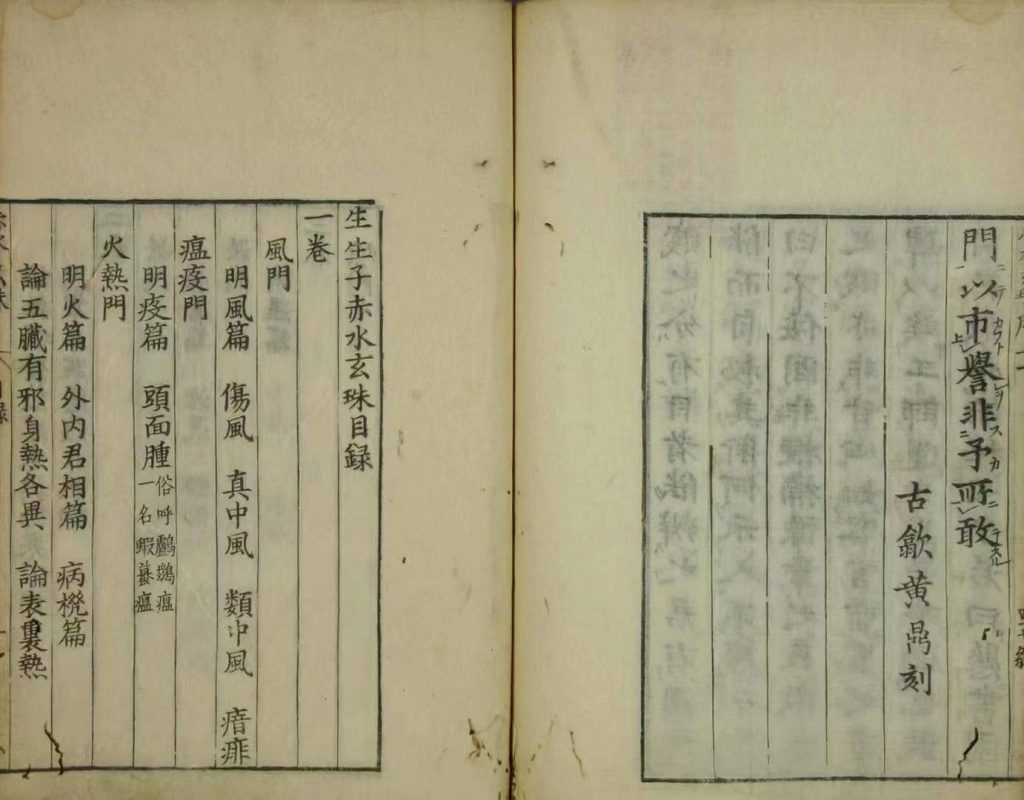 門以市譽非予所敢
古歙黄鼎刻
生生子赤水玄珠目録
一卷
風門
明風篇　傷風　真中風　類中風　瘖痱
瘟疫門
明疫篇　頭面腫俗呼鸕鷀瘟一名蝦蟇瘟
火熱門
明火篇　外内君相篇　病機篇
論五臟有邪身熱各異　論表裏熱